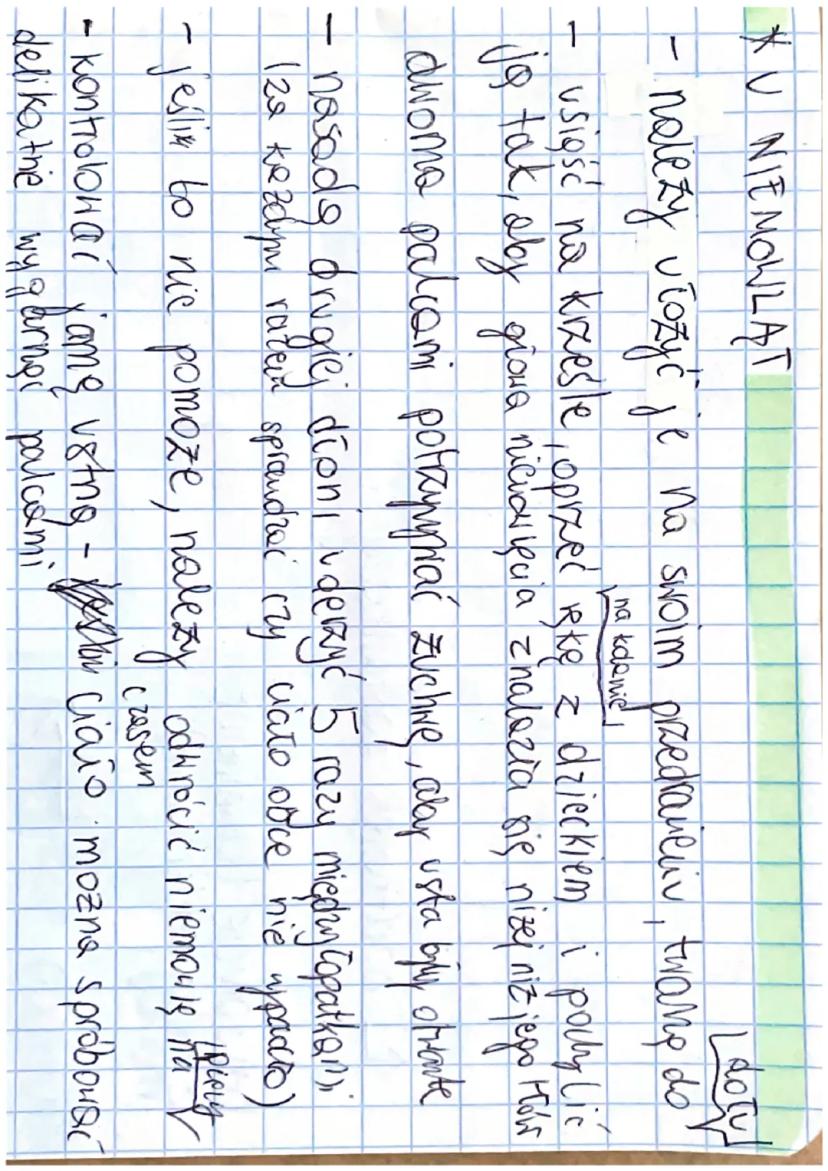 * U NIEMOWLĄT
- należy ułożyć je na swoim przedramieniu, twarzą do dołu
- usiąść na krześle, oprzeć rękę z dzieckiem na kolanie i pochylić
ją tak, aby głowa niemowlęcia znalazła się niżej niż jego tłów
dwoma palcami potrzymać żuchwę, aby usta były otwarte
- nasadą drugiej dłoni uderzyć 5 razy między łopatkami
(za każdym razem sprawdzać czy ciało obce nie wypadło)
- jeśli to nie pomoże, należy odwrócić niemowlę na plecy
czasem
- kontrolować jamę ustną - ciało można spróbować
delikatnie wygarnąć palcami